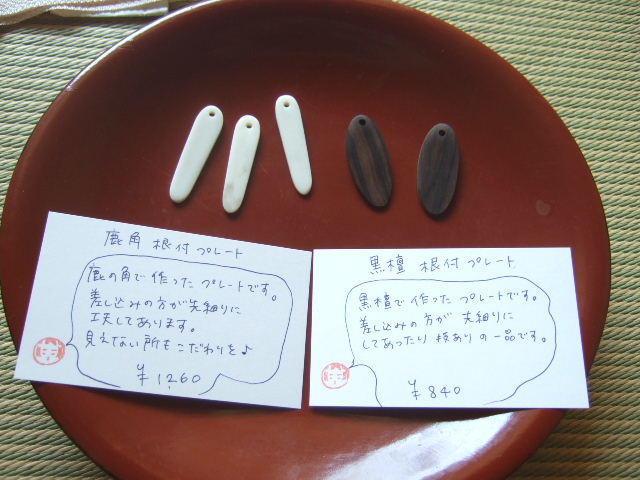 鹿角 根付 プレート
鹿の角で 作った プレートです。
差し込みの方が先細りに
工夫してあります。
見えない所もこだわりを♪
¥1260
黒檀 根付 プレート
黒檀で 作った プレートです。
差し込みの方が 先細りに
してあったり 技ありの一品です。
¥840